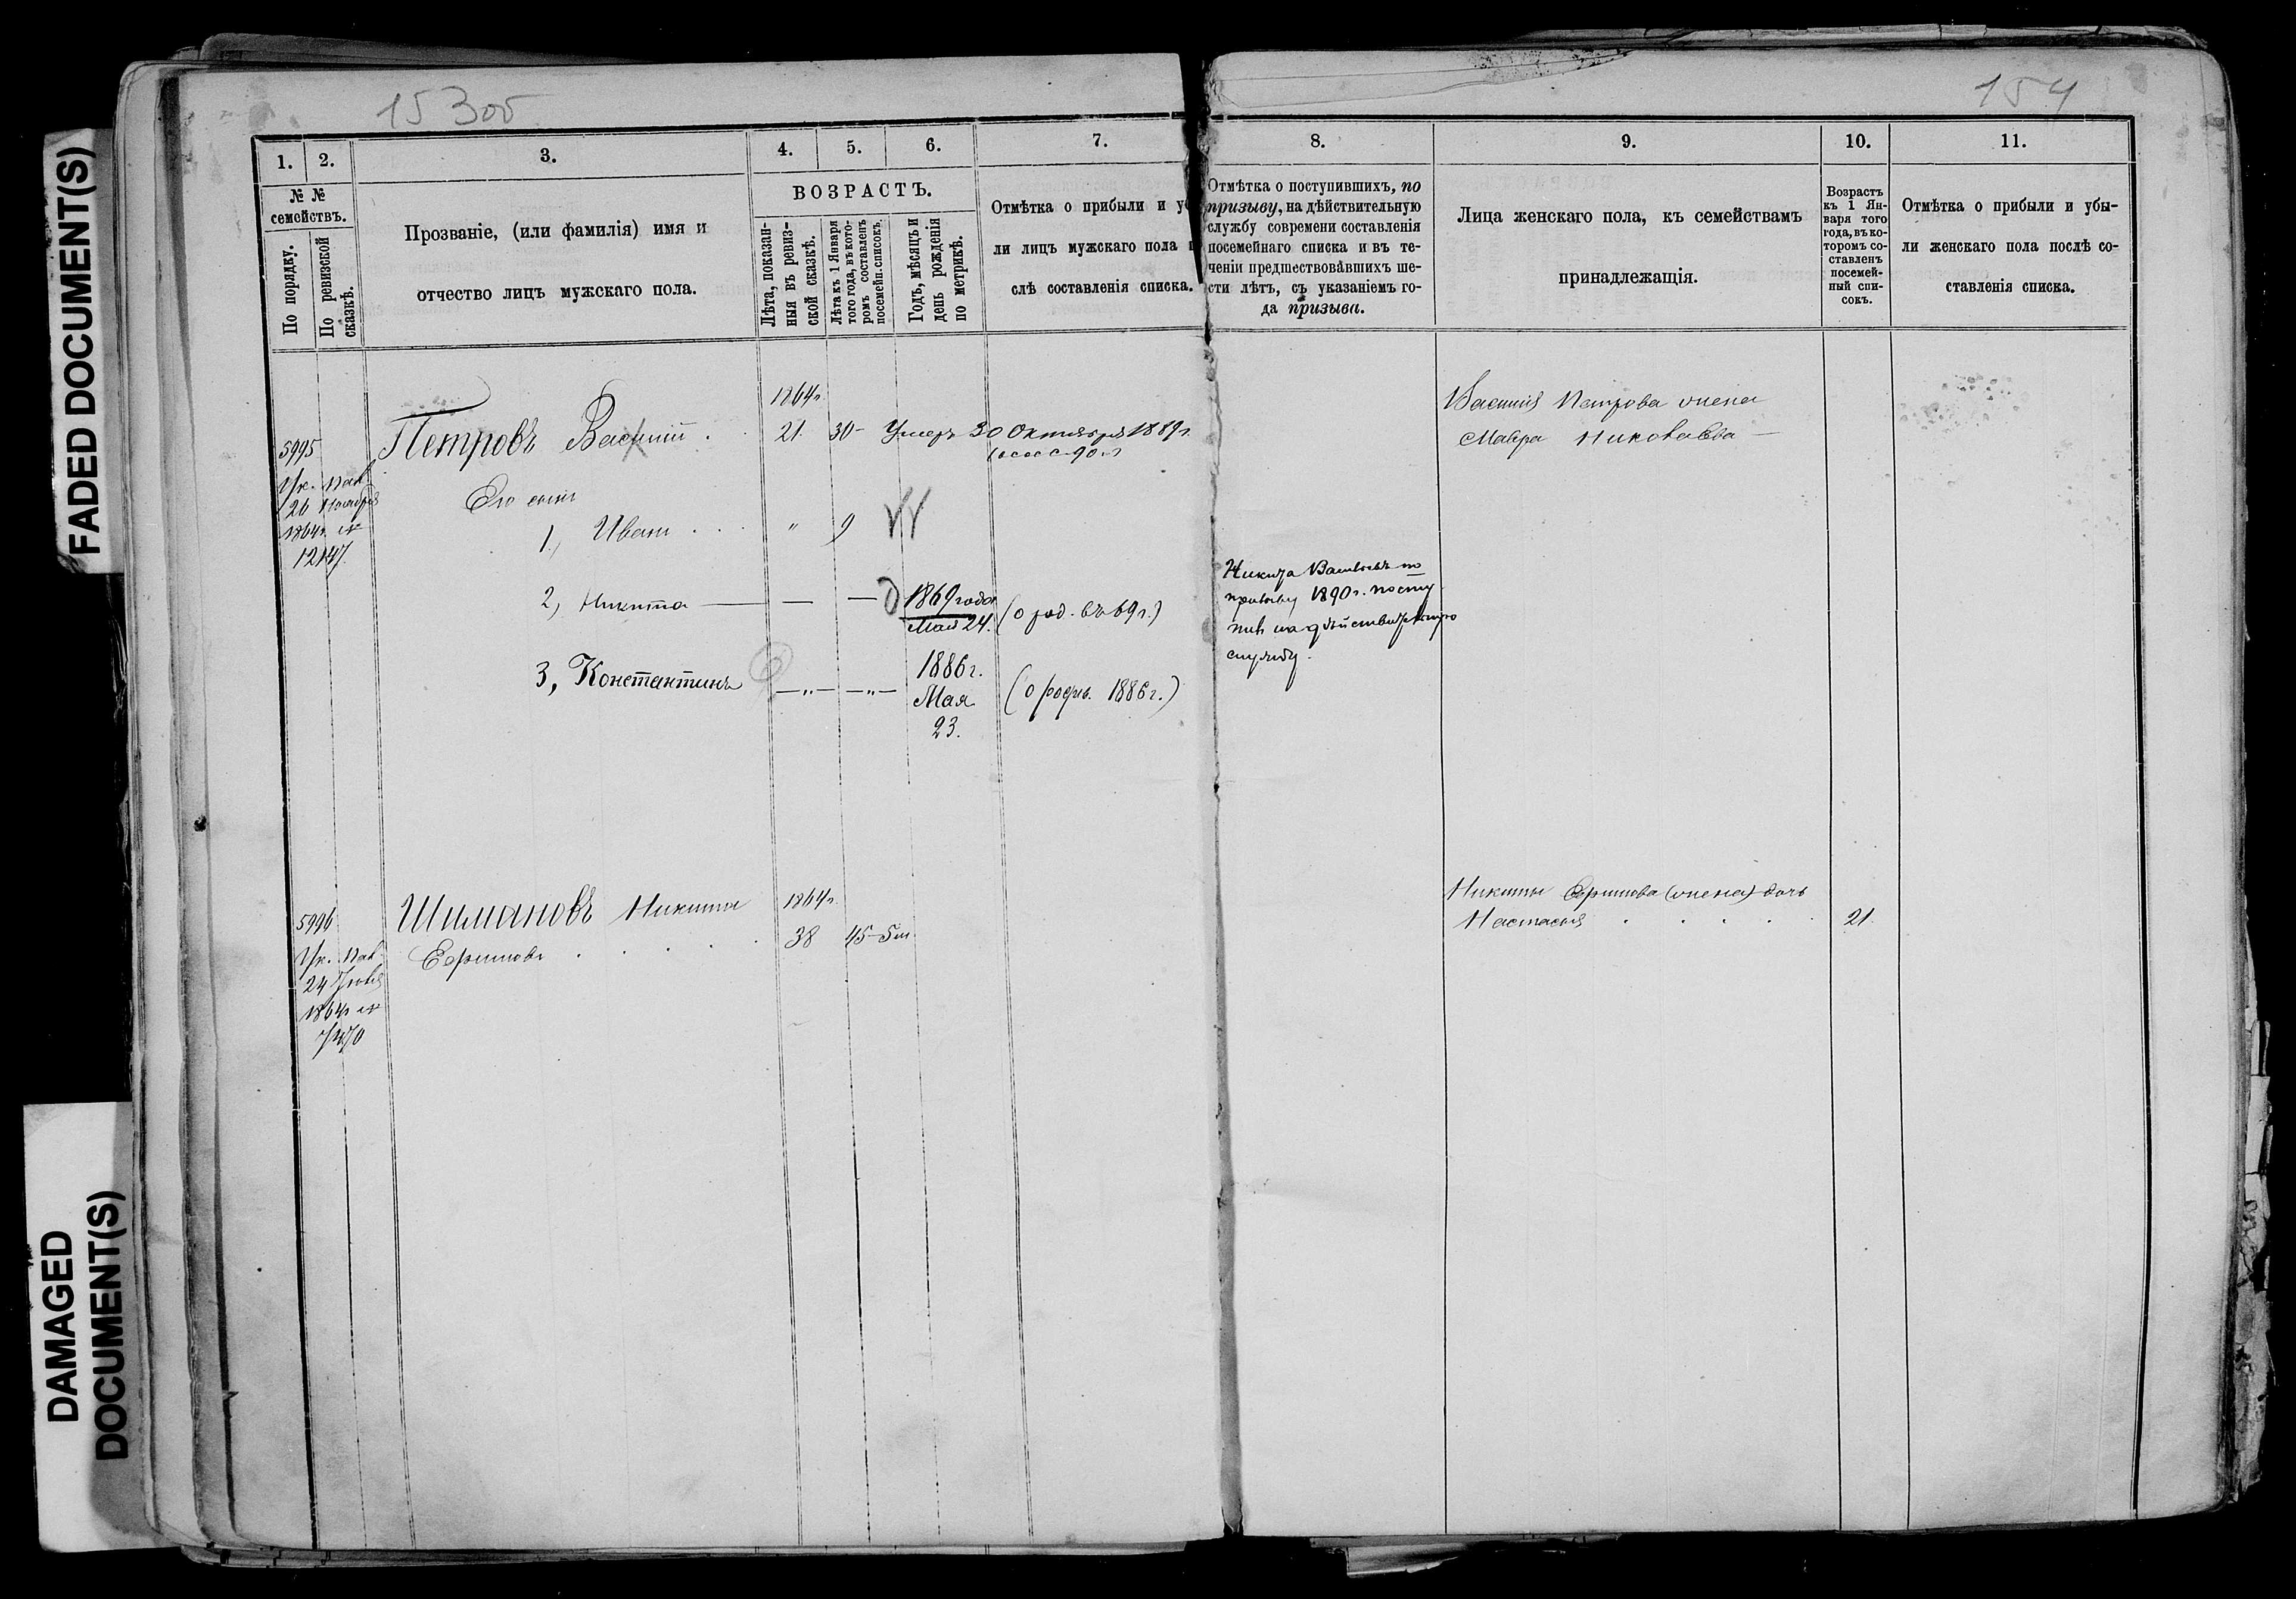 FADED DOCUMENT(S)
DAMAGED
DOCUMENT(S)
153об
154
1.
2.
3.
4.
5.
6.
7.
8.
9.
10.
11.
№ №
семействъ.
По порядку.
По ревизской
сказкѣ.
Прозваніе, (или фамилія) имя и
отчество лицъ мужскаго пола.
ВОЗРАСТЪ.
Лѣта, показан-
ныя въ ревиз-
ской сказкѣ.
Лѣта къ 1 Января
того года, въ кото-
ромъ составленъ
посемейн. списокъ.
Годъ, мѣсяцъ и
день рожденія
по метрикѣ.
Отмѣтка о прибыли и у
ли лицъ мужскаго пола
слѣ составленія списка.
Отмѣтка о поступившихъ, по
призыву, на дѣйствительную
службу современи составленія
посемейнаго списка и въ те-
ченіи предшествовавшихъ ше-
сти лѣтъ, съ указаніемъ го-
да призыва.
Лица женскаго пола, къ семействамъ
принадлежащія.
Возрастъ
къ 1 Ян-
варя того
года, въ ко-
торомъ со-
ставленъ
посемей-
ный спи-
сокъ.
Отмѣтка о прибыли и убы-
ли женскаго пола послѣ со-
ставленія списка.
5995
Ук. Пал.
26 Ноября
1864г. №
12147.
Петровъ Василій
1864г.
21. 30 - Умеръ 30 Октября 1889г.
Его сыны
1, Иванъ " 9
2, Никита — — —
1869 года
Мая 24.
(о род. въ 69г.)
3, Константинъ —"— —"—
1886г.
Мая
23.
(о рожд. 1886г.)
Никита Васильевъ по
призыву 1890г. посту
пилъ на дѣйствительную
службу.
Василія Петрова жена
Мавра Николаева —
5996
Ук. Пал.
24 Іюля
1864г №
Шимановъ Никита
Ефимовъ
1864г.
38 45-5м.
Никиты Ефимова (жена) дочь
Настасья 21.